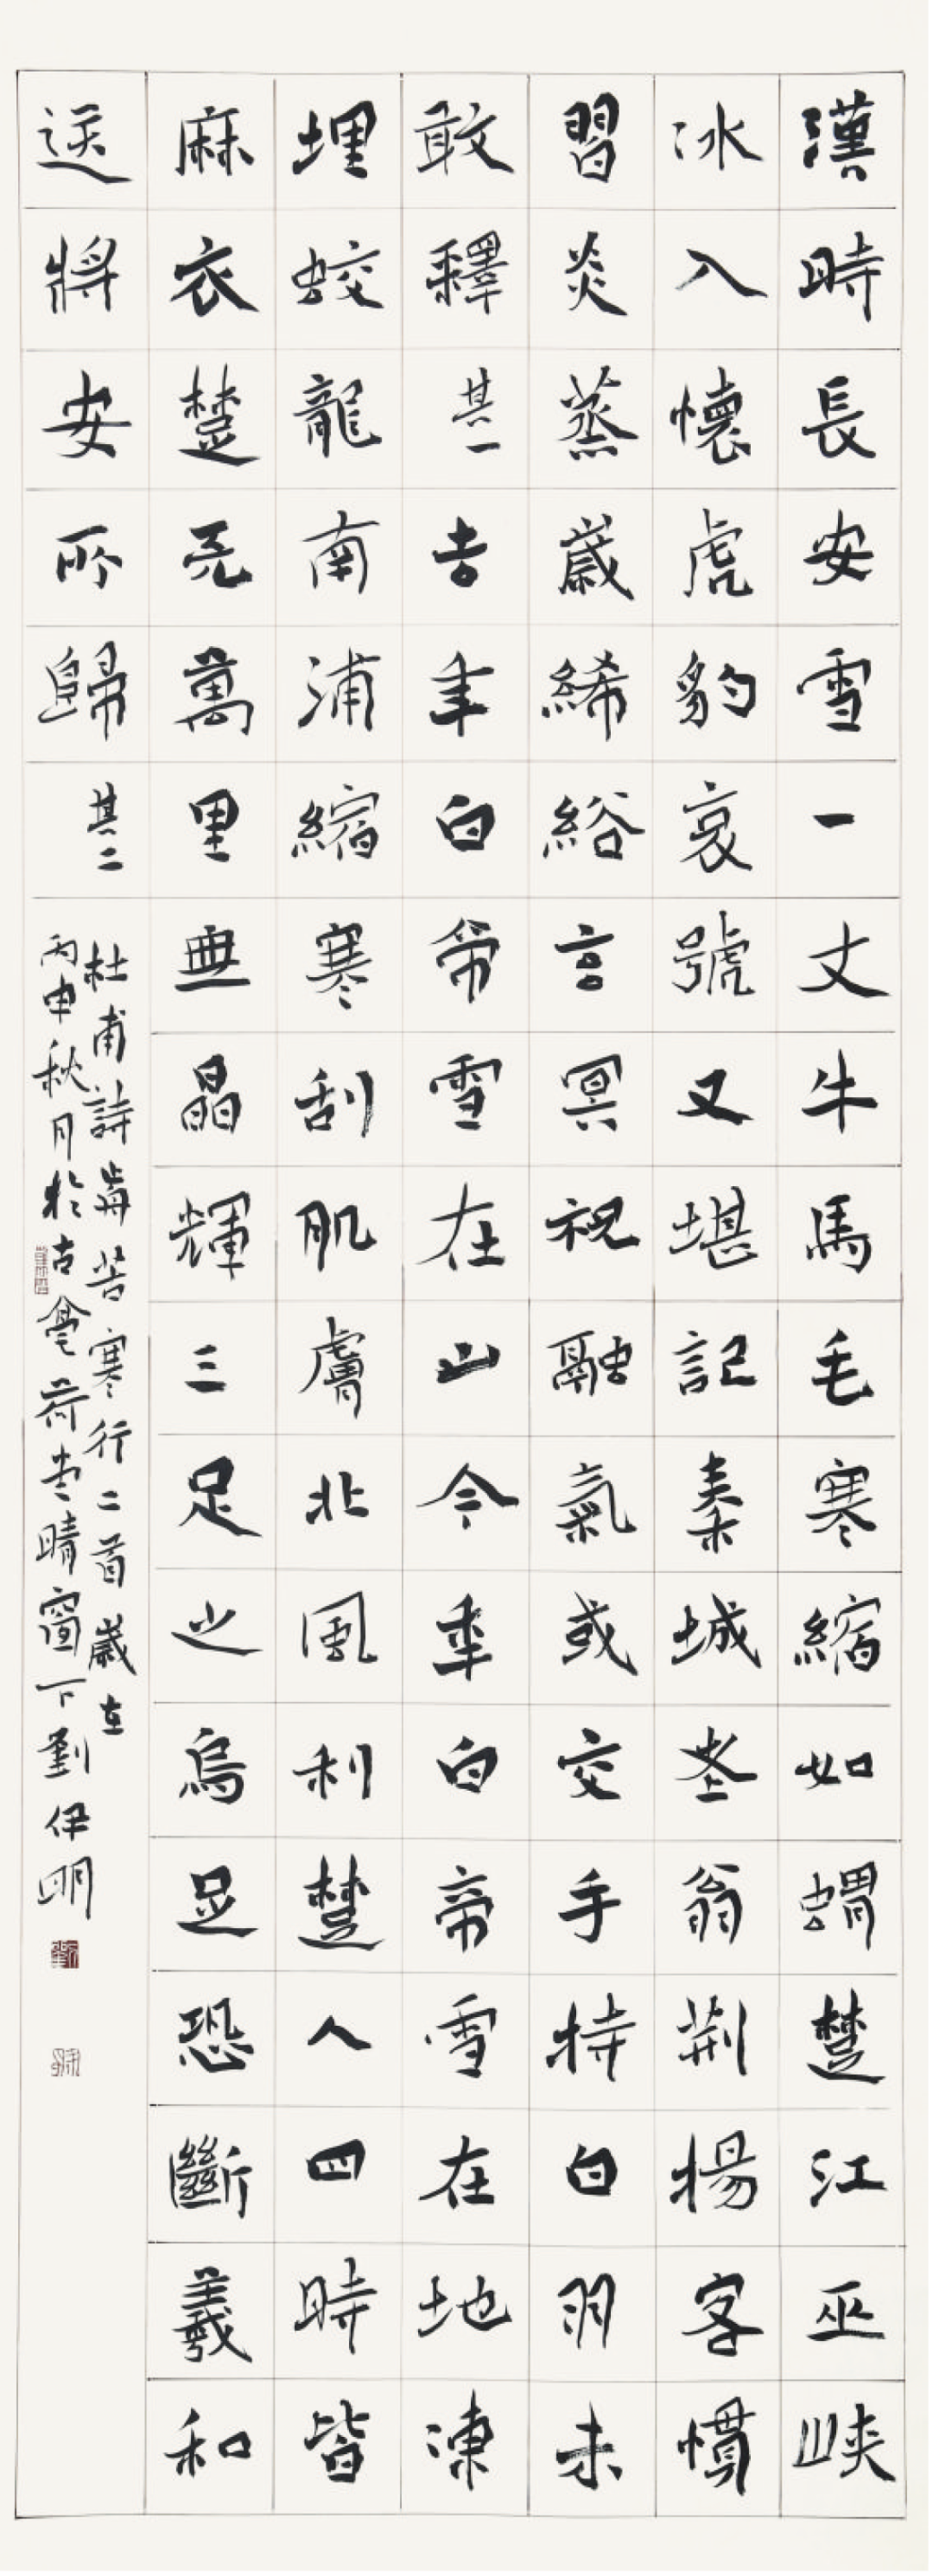 漢時長安雪一丈牛馬毛寒縮如蝟楚江巫峽
冰入懷虎豹哀號又堪記秦城老翁荊揚客慣
習炎蒸歲絺綌玄冥祝融氣或交手持白羽未
敢釋其一去年白帝雪在山今年白帝雪在地凍
埋蛟龍南浦縮寒刮肌膚北風利楚人四時皆
麻衣楚天萬里無晶輝三足之烏足恐斷羲和
送將安所歸其二
杜甫詩前苦寒行二首歲在
丙申秋月於古亳荷堂晴窗下劉伊明